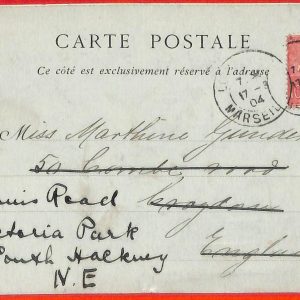 CARTE POSTALE
Ce côté est exclusivement réservé à l'adresse
7
17 -3
04
MARSEIL
Miss Marthine
50 Combe road
uis Road Croydon
toria Park
outh Hackney Engla
N.E